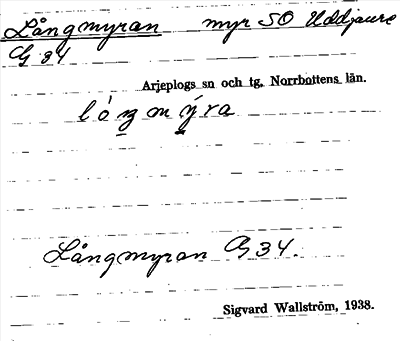 Långmyran myr SO Uddjaure
G 34
Arjeplogs sn och tg, Norrbottens län.
Långmyran G 34.
Sigvard Wallström, 1938.